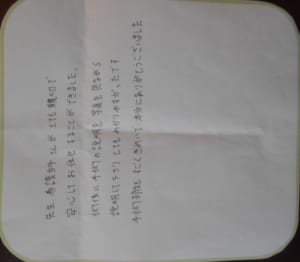 先生 看護師さんが とても親切で
安心して お任せすることができました。
術後に手術の説明を 写真を見ながら
説明して下さり とてもわかりやすかったです
手術部も すごくきれいで 本当にありがとうございました